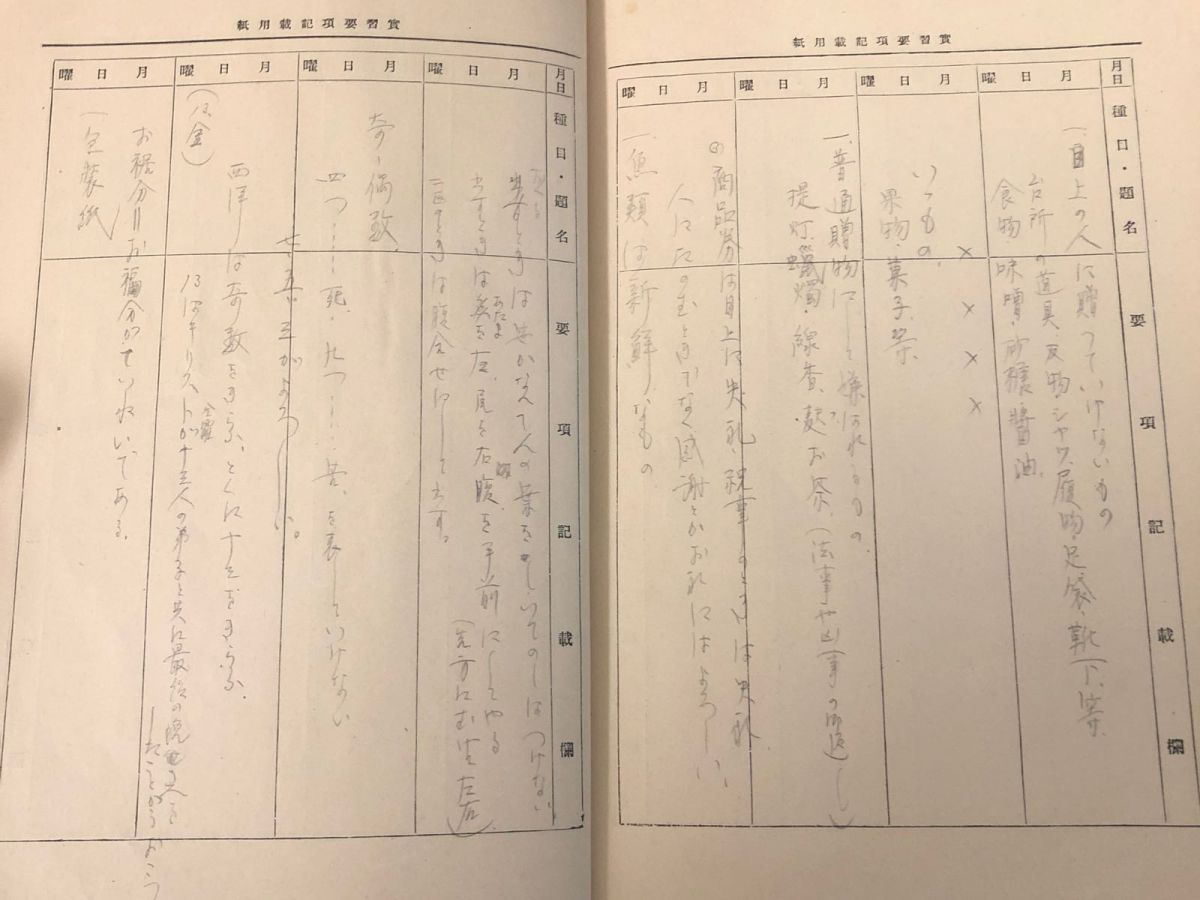 實習要項記載用紙
月日 種目・題名 要項記載欄
月日曜
月日曜
月日曜
月日曜
一、目上の人に贈つていけないもの
台所の道具、反物、シャツ、履物、足袋、靴下、等
食物・味噌・砂糖、醬油
× × × ×
いつもの、
果物・菓子、等
一、普通贈物にして嫌はれるもの、
提灯、蠟燭、線香、麩、お茶、(法事や凶事の
商品券は目上に失礼、祝事のときは失礼
人にたのむときでなく感謝とかお礼にはよろしい、
一、魚類は新鮮なもの
實習要項記載用紙
月日 種目・題名 要項記載欄
月日曜
月日曜
月日曜
月日曜
のしはつけない
出すときは あたま を左、尾を右、腹を手前にしてやる
二匹のときは腹合せにして出す。
奇・偶数
四つ……死・九つ……苦、を表していけない
七・五・三がよろしい。
西洋は奇数をきらふ、とくに十三をきらふ、
(13、金)
13はキリストが十三人の弟子と共に最後の晩
金曜
したことから
お裾分けはお福分がきれいである、
一、包装紙